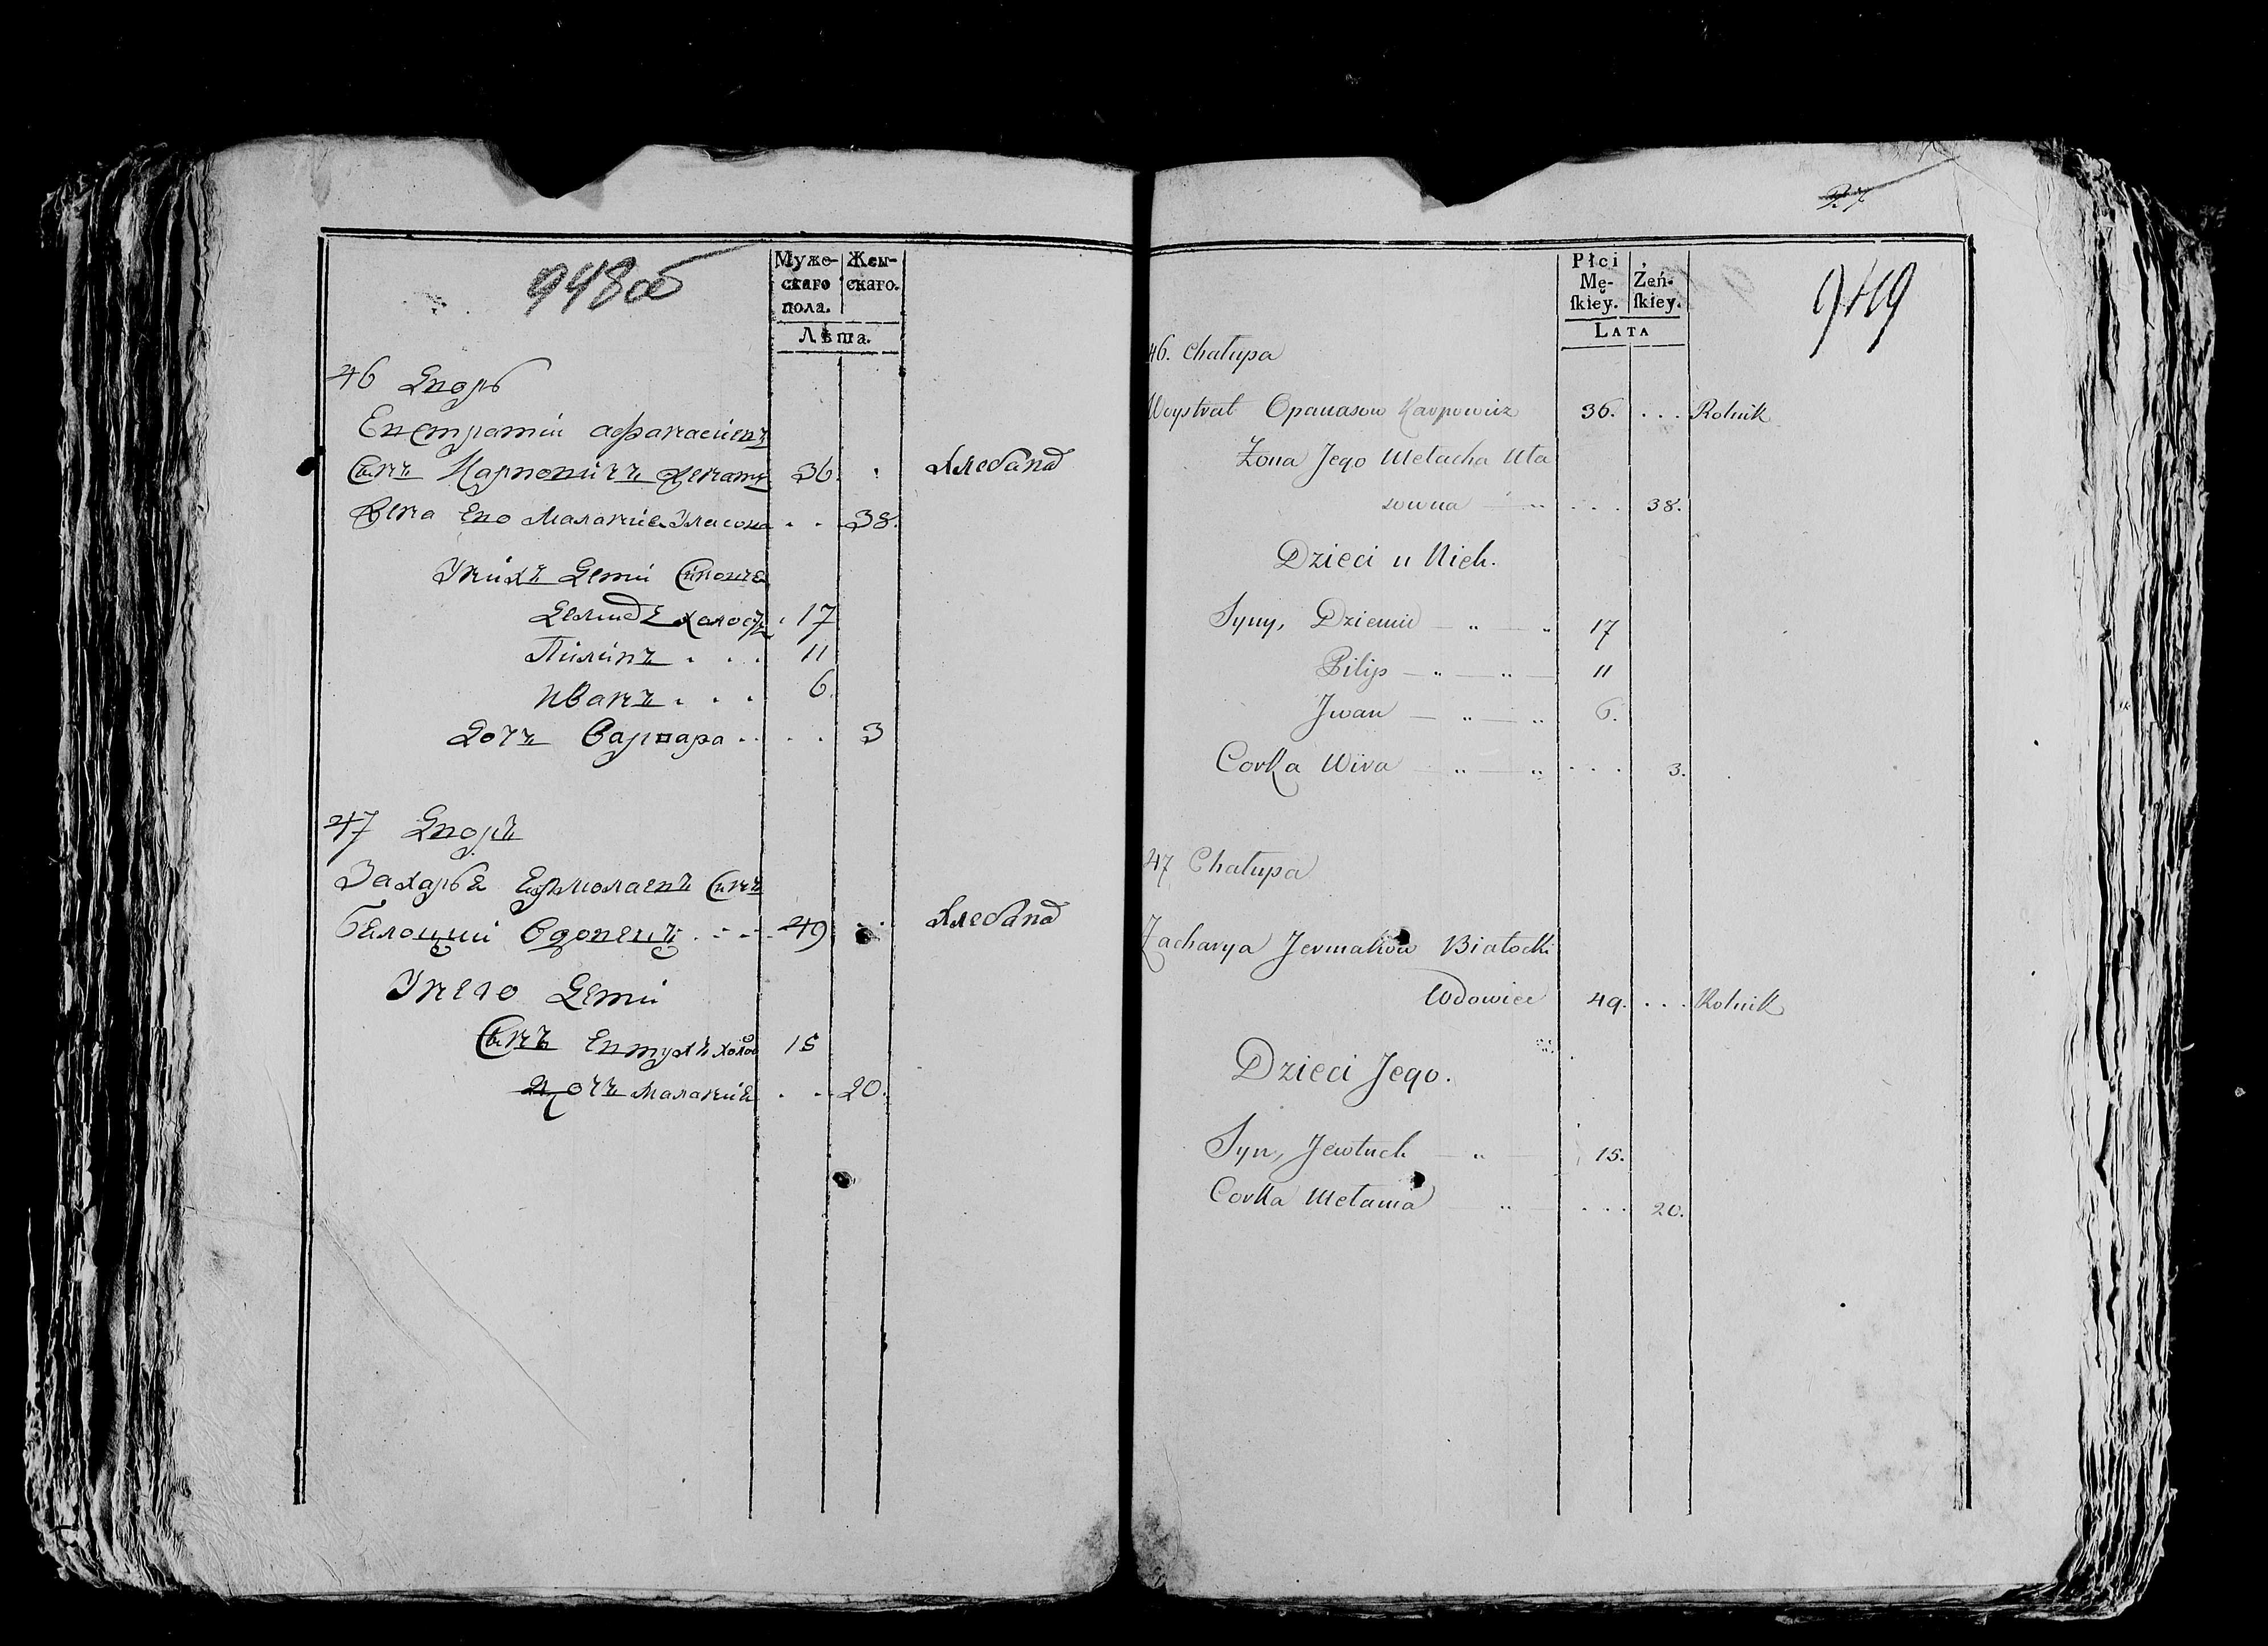 948об
Муже-
скаго
пола.
Жен-
скаго.
Лѣта.
46 Дворъ
Евстратий Афанасиевъ
Сынъ Карповичъ Женатъ 36 . Хлебопа
Жена Его Малания Уласова . . 38.
У нихъ Дети Сыновья
Демидъ Холост . 17
Пилипъ . . . 11
Иванъ . . . 6
Дочь Варвара . . . . 3
47 Дворъ
Захарья Ермолаевъ Сынъ
Белоцкий Вдовецъ . - - - 49 . . Хлебопа
У него Дети
Сынъ Евтухъ холо 15
Дочь Малания . . . 20.
949
Płci
Mę-
ſkiey.
Żeń-
ſkiey.
LATA
46. Chałupa
Woystrat Opanasow Karpowicz 36. . . . Rolnik
Żona Jego Mełacha Uła
sowna . . . 38.
Dzieci u Nich.
Syny, Dziemid — „ — „ 17
Pilip — „ — „ — 11
Jwan — „ — „ 6.
Corka Wiva — „ — „ . . . 3.
47 Chałupa
Zacharya Jermakow Białocki
Wdowiec 49. . . . Rolnik
Dzieci Jego.
Syn, Jewtuch — „ — 15.
Corka Mełania — „ — . . . 20.